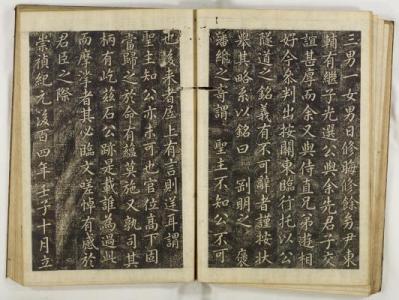 三男一女男曰修晦修餘女尹東
輔有継子光選公與余先君子交
誼甚厚而余又與侍直兄弟遊相
好今參判出按關東臨行托以公
隧道之銘義有不可辭者謹按状
其略系以銘曰 明之褒
藩維之寄謂 聖主不知公不可
也後来者居上有言則逕耳謂
聖主知公亦未可也官位高下固
當歸之於命有蘊莫施又孰司其
柄有屹茲石公跡是載誰為過此
而摩挲者其必臨文嗟悼有感於
君臣之際
崇禎紀元後百四年壬子十月立